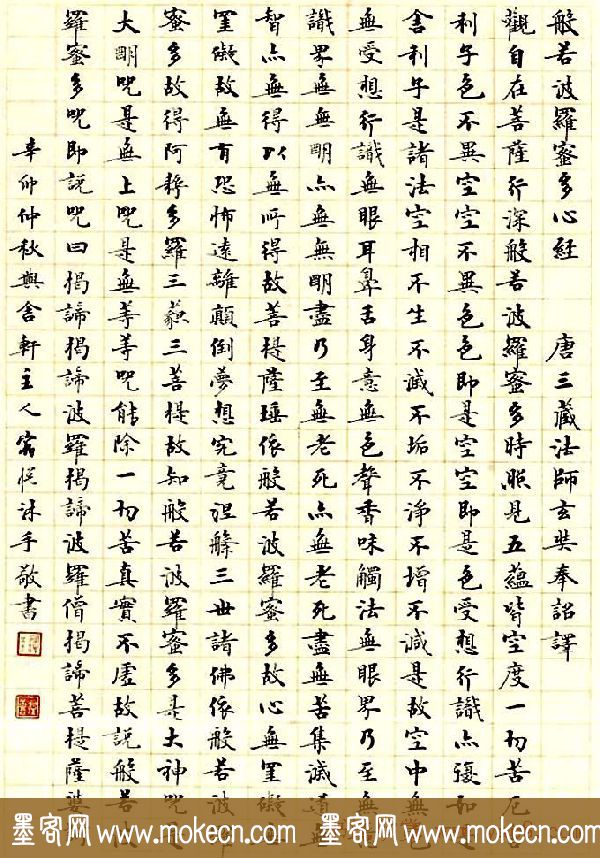 般若波羅蜜多心経 唐三藏法師玄奘奉詔譯
觀自在菩薩行深般若波羅蜜多時照見五蘊皆空度一切苦厄
利子色不異空空不異色色即是空空即是色受想行識亦復如
舍利子是諸法空相不生不滅不垢不淨不增不減是故空中無
無受想行識無眼耳鼻舌身意無色聲香味觸法無眼界乃至無
識界無無明亦無無明盡乃至無老死亦無老死盡無苦集滅道無
智亦無得以無所得故菩提薩埵依般若波羅蜜多故心無罣礙
罣礙故無有恐怖遠離顛倒夢想究竟涅槃三世諸佛依般若波
蜜多故得阿耨多羅三藐三菩提故知般若波羅蜜多是大神咒是
大明咒是無上咒是無等等咒能除一切苦真實不虛故說般若波
羅蜜多咒即說咒曰揭諦揭諦波羅揭諦波羅僧揭諦菩提薩婆
辛卯仲秋興舍軒主人沐手敬書
墨客网 www.mokecn.com 墨客网 www.mokecn.com